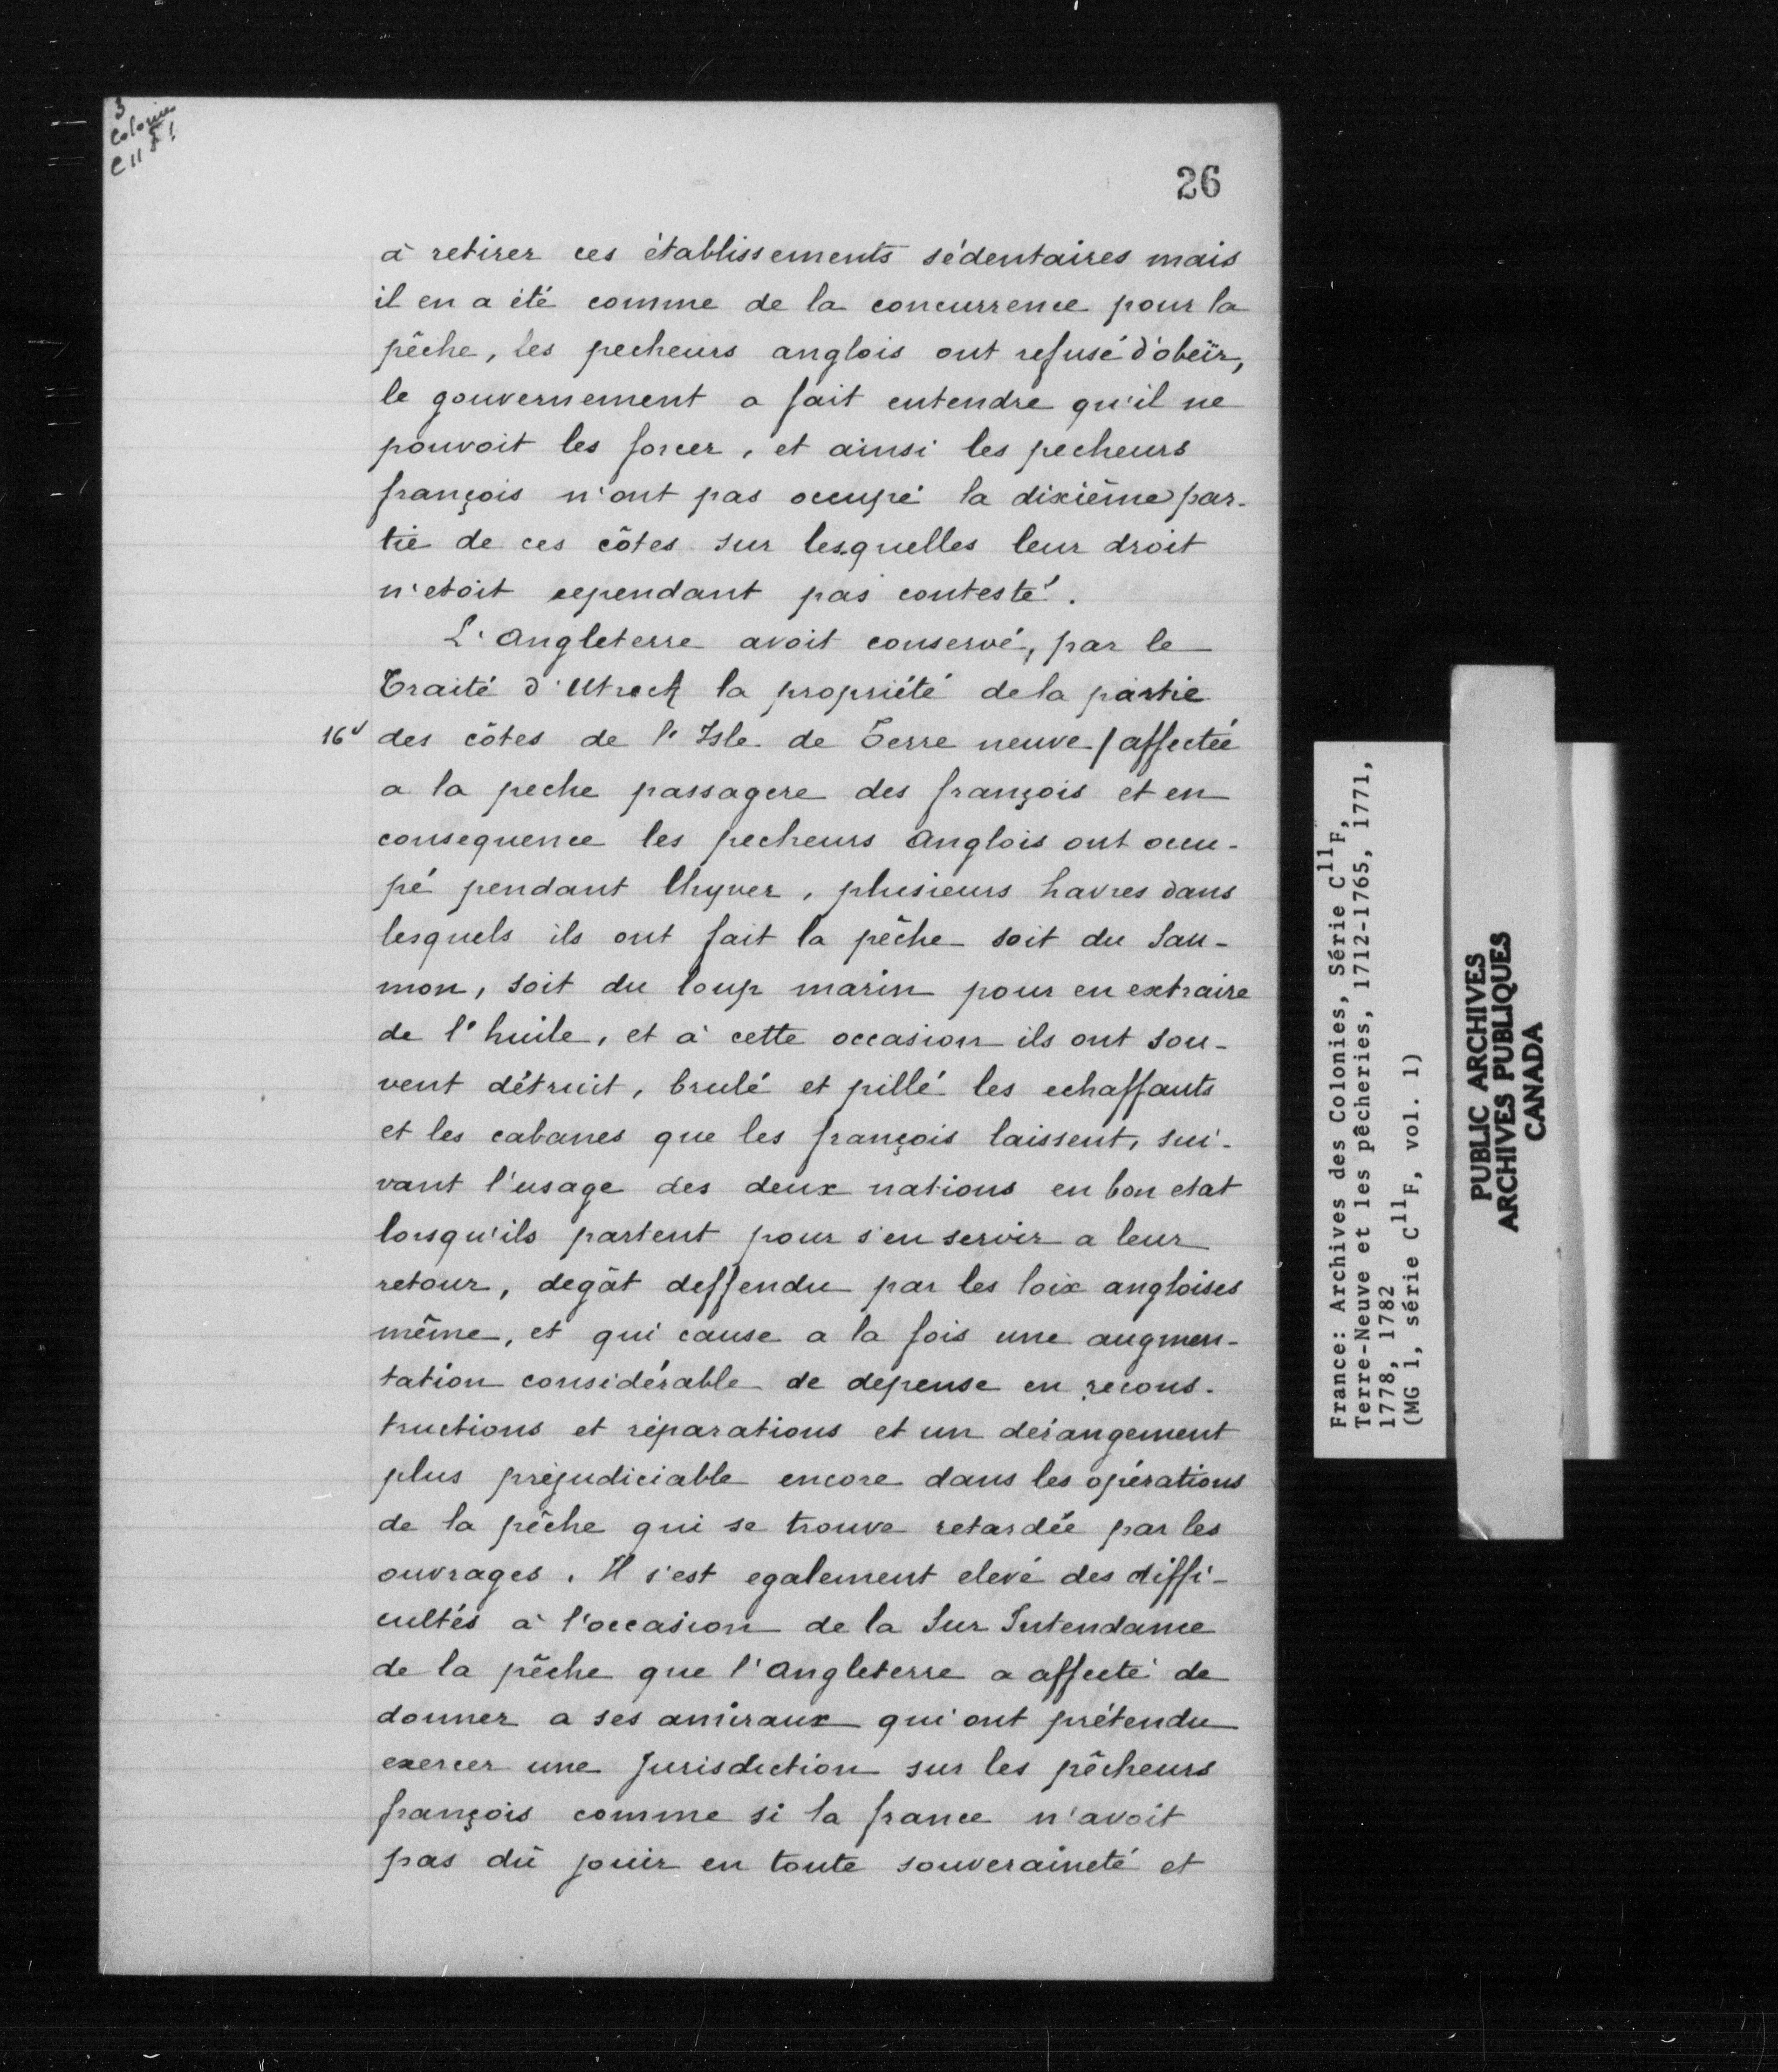 3
Colonies
C11 F1
26
à retirer ces établissements sédentaires mais
il en a été comme de la concurrence pour la
pêche, les pecheurs anglois ont refusé d'obeïr,
le gouvernement a fait entendre qu'il ne
pouvoit les forcer, et ainsi les pecheurs
françois n'ont pas occupé la dixième par-
tie de ces côtes sur lesquelles leur droit
n'etoit cependant pas contesté.
L'Angleterre avoit conservé, par le
Traité d'Utrech la propriété de la partie
16v des côtes de l'Isle de Terre neuve / affectée
a la peche passagere des françois et en
consequence les pecheurs Anglois ont occu-
pé pendant lhyver, plusieurs havres dans
lesquels ils ont fait la pêche soit du Sau-
mon, soit du loup marin pour en extraire
de l'huile, et à cette occasion ils ont sou-
vent détruit, brulé et pillé les echaffauts
et les cabanes que les françois laissent, sui-
vant l'usage des deux nations en bon etat
lorsqu'ils partent pour s'en servir a leur
retour, degât deffendu par les loix angloises
même, et qui cause a la fois une augmen-
tation considérable de dépense en recons-
tructions et réparations et un dérangement
plus préjudiciable encore dans les opérations
de la pêche qui se trouve retardée par les
ouvrages. Il s'est egalement elevé des diffi-
cultés à l'occasion de la Sur Intendance
de la pêche que l'Angleterre a affecté de
donner a ses amiraux qui ont prétendu
exercer une Jurisdiction sur les pêcheurs
françois comme si la france n'avoit
pas dû jouir en toute souveraineté et
France: Archives des Colonies, Série C11F,
Terre-Neuve et les pêcheries, 1712-1765, 1771,
1778, 1782
(MG 1, série C11F, vol. 1)
PUBLIC ARCHIVES
ARCHIVES PUBLIQUES
CANADA